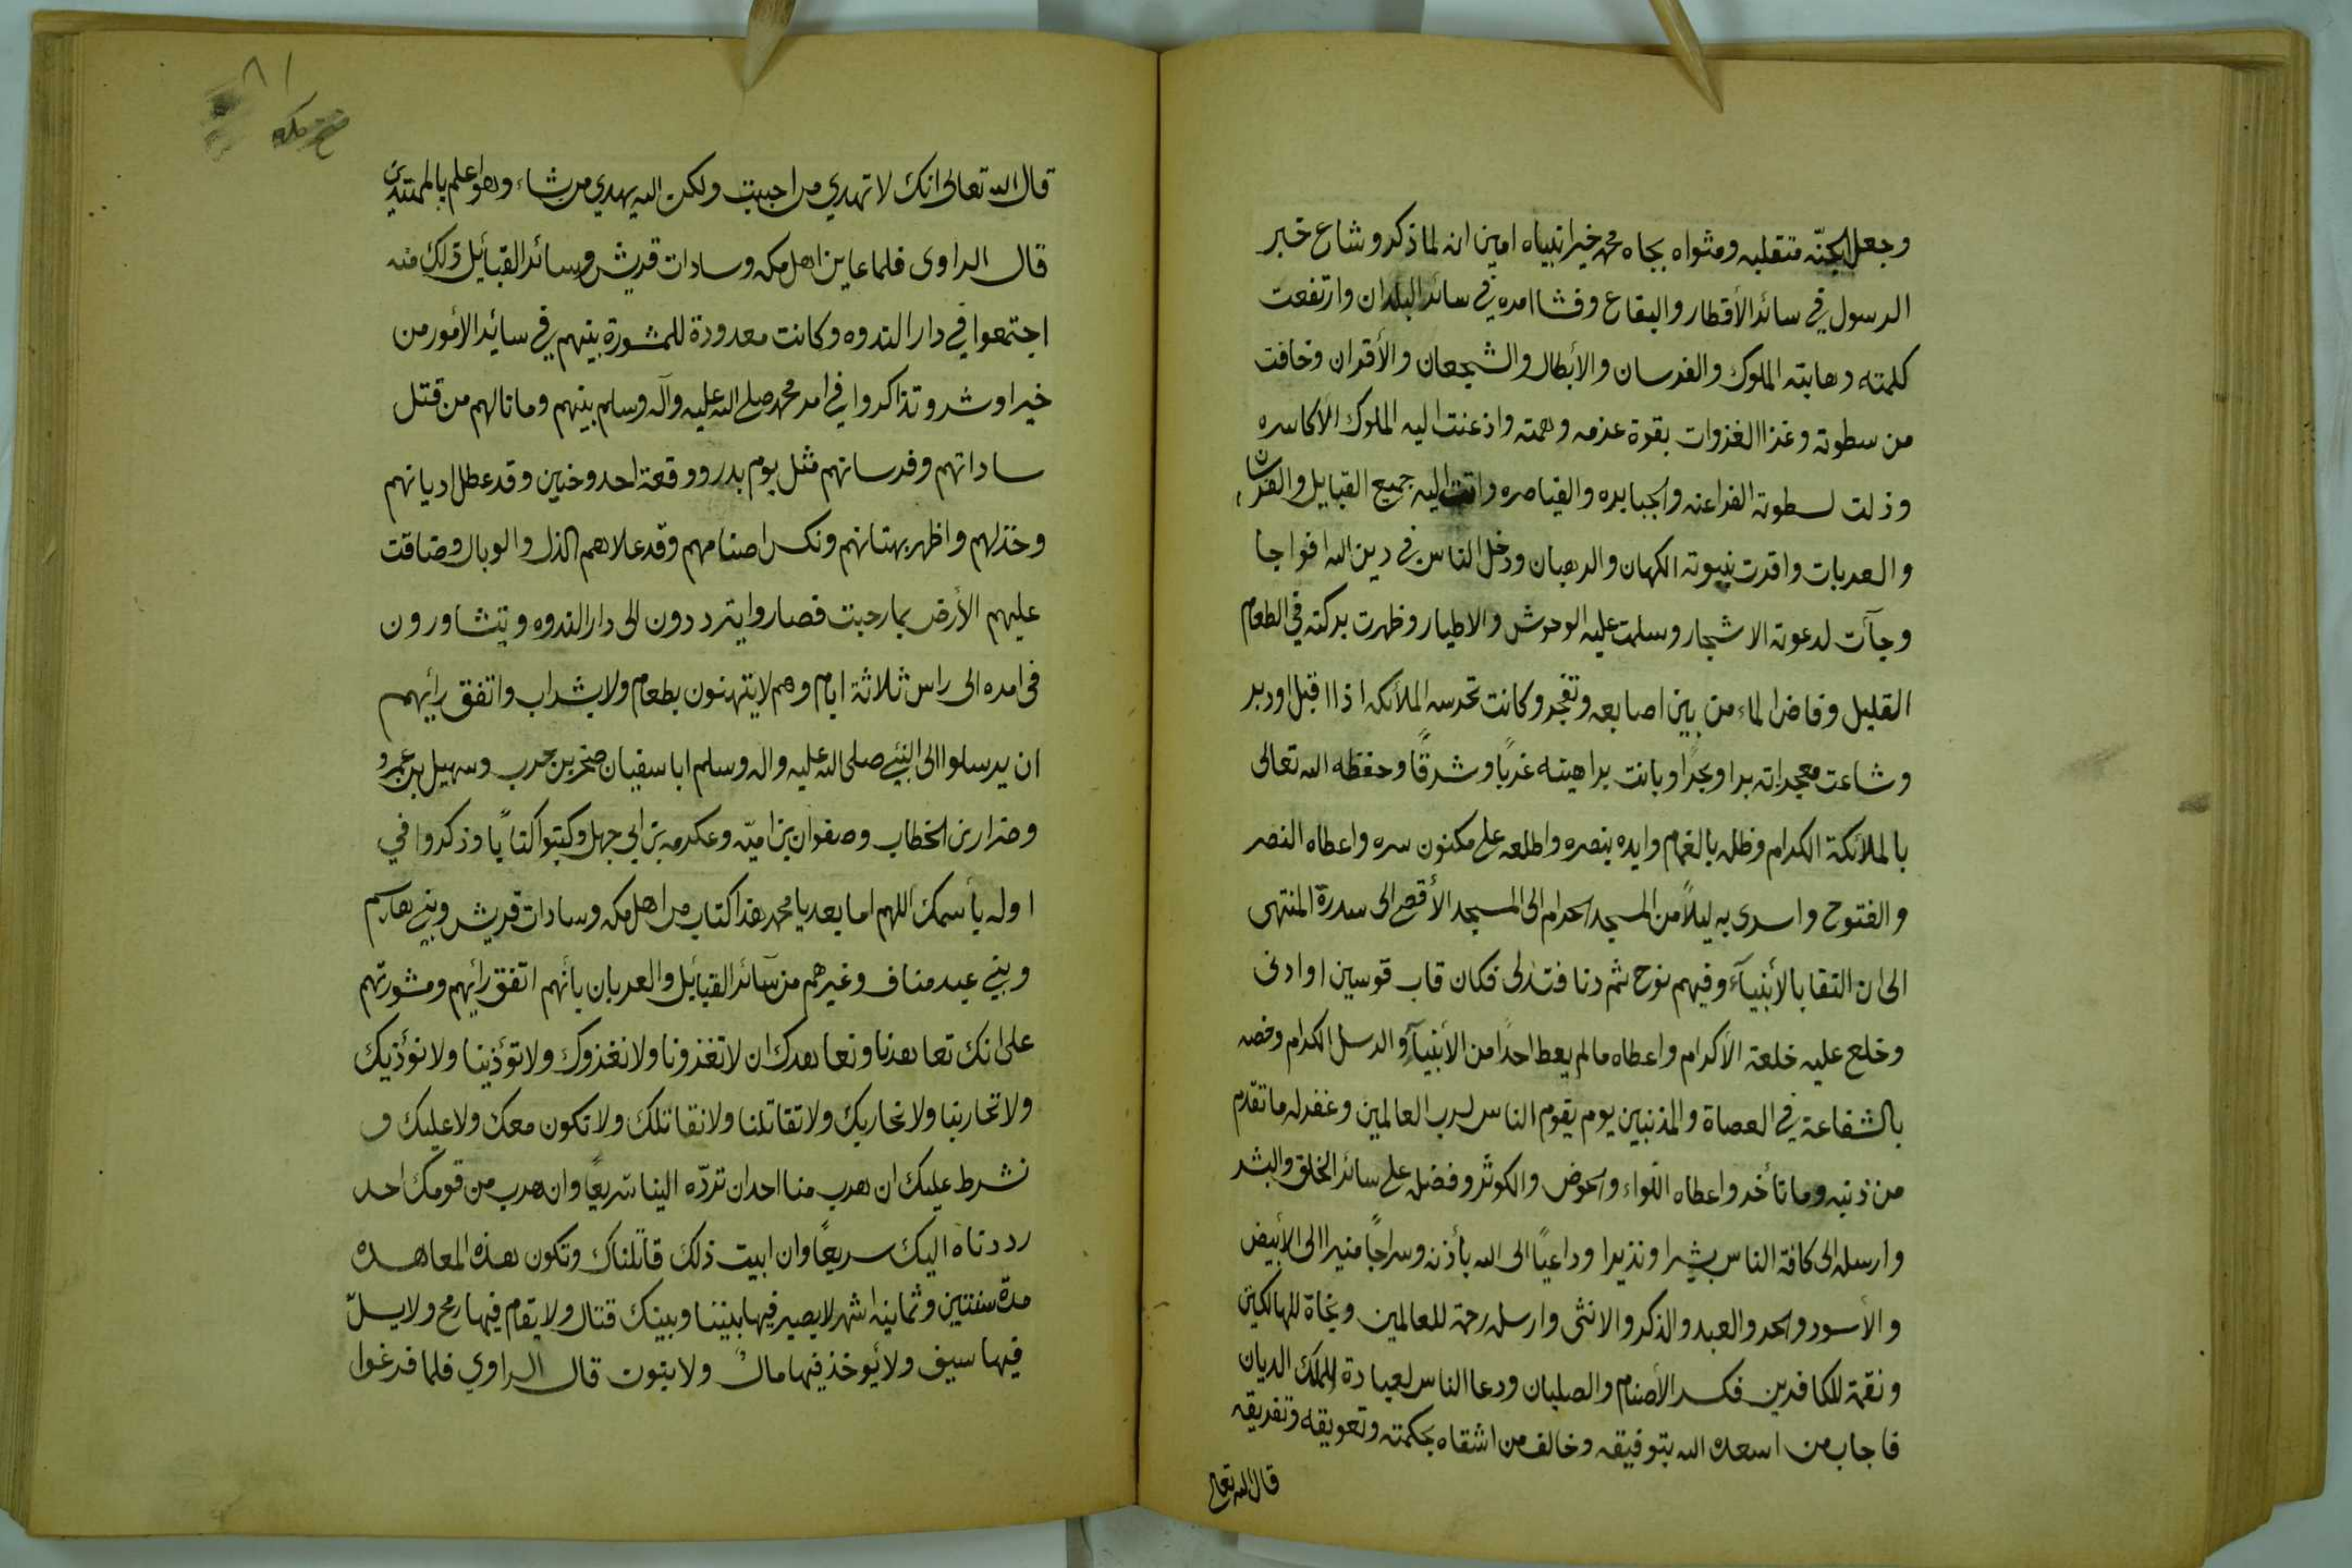 وجعل الجنّه متقلبه ومثواه بجاه محمد خير انبياه امين انه لما ذكر وشاع خبر
الرسول في سائر الأقطار والبقاع وفشا امره في سائر البلدان وارتفعت
كلمته وهابته الملوك والفرسان والأبطال والشجعان والأقران وخافت
من سطوته وغزا الغزوات بقوة عزمه وهمته واذعنت اليه الملوك الاكاسره
وذلت لسطوته الفراعنه والجبابره والقياصره واتت اليه جميع القبايل والفرسان
والعربات واقرت بنبوته الكهان والرهبان ودخل الناس في دين الله افواجا
وجآت لدعوته الاشجار وسلمت عليه الوحوش والاطيار وظهرت بركته في الطعام
القليل وفاض الماء من بين اصابعه وتفجر وكانت تحرسه الملائكه اذا اقبل اودبر
وشاعت معجزاته برا وبحرًا وبانت براهينه غربًا وشرقًا وحفظه الله تعالى
بالملائكة الكرام وظله بالغمام وايده بنصره واطلعه على مكنون سره واعطاه النصر
والفتوح واسرى به ليلاً من المسجد الحرام الى المسجد الأقصى الى سدرة المنتهى
الى ان التقا بالأنبيآء وفيهم نوح ثم دنا فتدلى فكان قاب قوسين او ادنى
وخلع عليه خلعة الأكرام واعطاه مالم يعط احدًا من الأنبيآء والرسل الكرام وخصه
بالشفاعة في العصاة والمذنبين يوم يقوم الناس لرب العالمين وغفر له ما تقدم
من ذنبه وما تأخر واعطاه اللواء والحوض والكوثر وفضله على سائر الخلق والبشر
وارسله الى كافة الناس بشيرا ونذيرا وداعيًا الى الله بأذنه وسراجًا منيرا الى الأبيض
والأسود والحر والعبد والذكر والانثى وارسله رحمة للعالمين ونجاة للهالكين
ونقمة للكافرين فكسر الأصنام والصلبان ودعا الناس لعبادة الملك الديان
فاجاب من اسعده الله بتوفيقه وخالف من اشقاه بحكمته وتعويقه وتفريقه
قال الله تعالى
٨١
فتح مكه
قال الله تعالى انك لا تهدي من احببت ولكن الله يهدي من يشاء وهو اعلم بالمهتدين
قال الراوى فلما عاين اهل مكه وسادات قريش وسائر القبائيل ذلك منه
اجتمعوا في دار الندوه وكانت معدودة للمشورة بينهم في سائير الأمور من
خير اوشر وتذاكروا في امر محمد صلى الله عليه وآله وسلم بينهم وما نالهم من قتل
ساداتهم وفرسانهم مثل يوم بدر ووقعة احد وحنين وقد عطل اديانهم
وخذلهم واظهر بهتانهم ونكس اصنامهم وقد علاهم الذل والوبال وضاقت
عليهم الأرض بما رحبت فصاروا يترددون الى دار الندوه ويتشاورون
فى امره الى راس ثلاثة ايام وهم لا يتهنون بطعام ولا بشراب واتفق رأيهم
ان يرسلوا الى النبي صلى الله عليه واله وسلم ابا سفيان صخر بن حرب وسهيل بن عمرو
وضرار بن الخطاب وصفوان بن اميّه وعكرمه بن ابي جهل وكتبوا كتابًا وذكروا في
اوله بأسمك اللهم اما بعد يا محمد هذا كتاب من اهل مكه وسادات قريش وبني هاشم
وبني عبد مناف وغيرهم من سآئر القبائل والعربان بأنهم اتفق رأيهم ومشورتهم
على انك تعاهدنا ونعاهدك ان لا تغزونا ولا نغزوك ولا تؤذينا ولا نؤذيك
ولا تحاربنا ولا نحاربك ولا تقاتلنا ولا نقاتلك ولا نكون معك ولا عليك و
نشرط عليك ان هرب منا احد ان تردّه الينا سريعًا وان هرب من قومك احد
رددناه اليك سريعًا وان ابيت ذلك قاتلناك وتكون هذه المعاهده
مدة سنتين وثمانيه اشهر لا يصير فيها بيننا وبينك قتال ولا يقام فيها رمح ولا يسلّ
فيها سيف ولا يُوخذ فيها مالٌ ولا بتوت قال الراوي فلما فرغوا